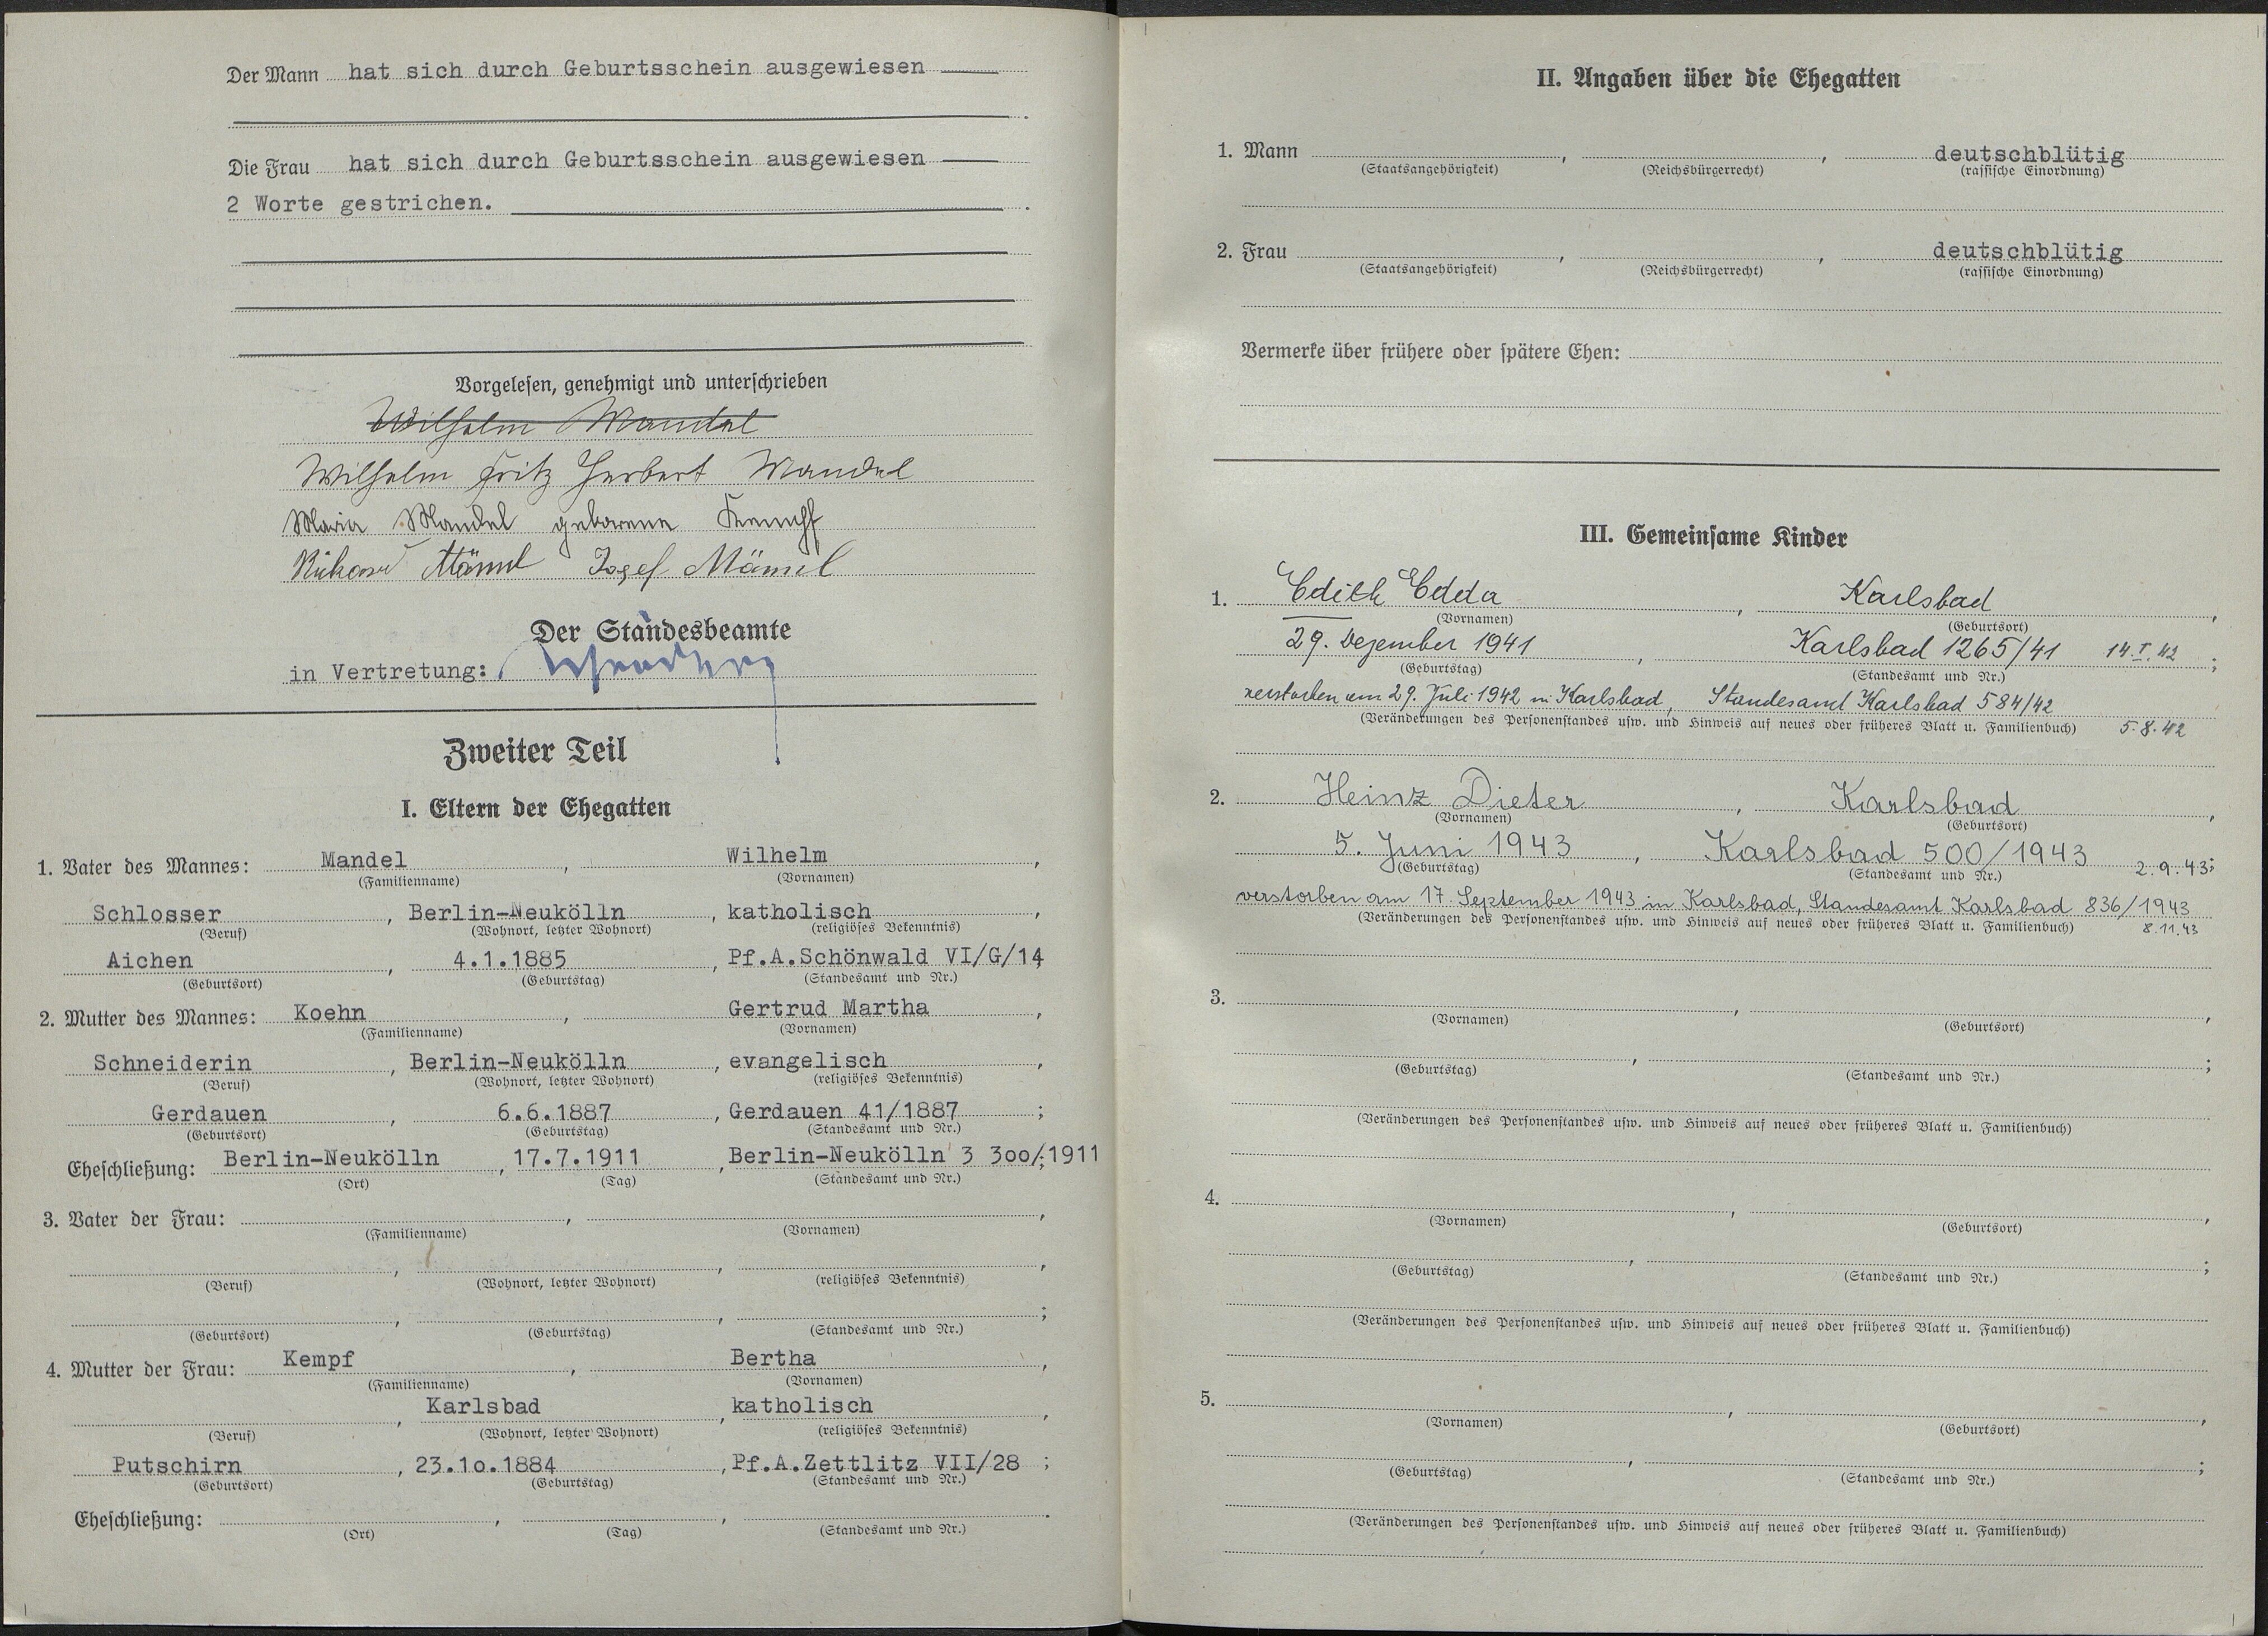 Der Mann hat sich durch Geburtsschein ausgewiesen
Die Frau hat sich durch Geburtsschein ausgewiesen
2 Worte gestrichen.
Vorgelesen, genehmigt und unterschrieben
Wilhelm Mandel
Wilhelm Fritz Herbert Mandel
Maria Mandel geborene Kempf
Rickard Mändl Josef Mändl
Der Standesbeamte
in Vertretung:
Zweiter Teil
I. Eltern der Ehegatten
1. Vater des Mannes: Mandel, Wilhelm,
(Familienname) (Vornamen)
Schlosser, Berlin-Neukölln, katholisch,
(Beruf) (Wohnort, letzter Wohnort) (religiöses Bekenntnis)
Aichen, 4.1.1885, Pf.A.Schönwald VI/G/14;
(Geburtsort) (Geburtstag) (Standesamt und Nr.)
2. Mutter des Mannes: Koehn, Gertrud Martha,
(Familienname) (Vornamen)
Schneiderin, Berlin-Neukölln, evangelisch,
(Beruf) (Wohnort, letzter Wohnort) (religiöses Bekenntnis)
Gerdauen, 6.6.1887, Gerdauen 41/1887;
(Geburtsort) (Geburtstag) (Standesamt und Nr.)
Eheschließung: Berlin-Neukölln, 17.7.1911, Berlin-Neukölln 3 3oo/;1911
(Ort) (Tag) (Standesamt und Nr.)
3. Vater der Frau: , ,
(Familienname) (Vornamen)
, , ,
(Beruf) (Wohnort, letzter Wohnort) (religiöses Bekenntnis)
, , ;
(Geburtsort) (Geburtstag) (Standesamt und Nr.)
4. Mutter der Frau: Kempf, Bertha,
(Familienname) (Vornamen)
, Karlsbad, katholisch,
(Beruf) (Wohnort, letzter Wohnort) (religiöses Bekenntnis)
Putschirn, 23.1o.1884, Pf.A.Zettlitz VII/28;
(Geburtsort) (Geburtstag) (Standesamt und Nr.)
Eheschließung: , , .
(Ort) (Tag) (Standesamt und Nr.)
II. Angaben über die Ehegatten
1. Mann , , deutschblütig
(Staatsangehörigkeit) (Reichsbürgerrecht) (rassische Einordnung)
2. Frau , , deutschblütig
(Staatsangehörigkeit) (Reichsbürgerrecht) (rassische Einordnung)
Vermerke über frühere oder spätere Ehen:
III. Gemeinsame Kinder
1. Edith Edda, Karlsbad,
(Vornamen) (Geburtsort)
29. Dezember 1941, Karlsbad 1265/41 14.I.42;
(Geburtstag) (Standesamt und Nr.)
verstorben am 29. Juli 1942 in Karlsbad, Standesamt Karlsbad 584/42
(Veränderungen des Personenstandes usw. und Hinweis auf neues oder früheres Blatt u. Familienbuch) 5.8.42
2. Heinz Dieter, Karlsbad,
(Vornamen) (Geburtsort)
5. Juni 1943, Karlsbad 500/1943 2.9.43;
(Geburtstag) (Standesamt und Nr.)
verstorben am 17. September 1943 in Karlsbad, Standesamt Karlsbad 836/1943
(Veränderungen des Personenstandes usw. und Hinweis auf neues oder früheres Blatt u. Familienbuch) 8.11.43
3. , ,
(Vornamen) (Geburtsort)
, ;
(Geburtstag) (Standesamt und Nr.)
(Veränderungen des Personenstandes usw. und Hinweis auf neues oder früheres Blatt u. Familienbuch)
4. , ,
(Vornamen) (Geburtsort)
, ;
(Geburtstag) (Standesamt und Nr.)
(Veränderungen des Personenstandes usw. und Hinweis auf neues oder früheres Blatt u. Familienbuch)
5. , ,
(Vornamen) (Geburtsort)
, ;
(Geburtstag) (Standesamt und Nr.)
(Veränderungen des Personenstandes usw. und Hinweis auf neues oder früheres Blatt u. Familienbuch)